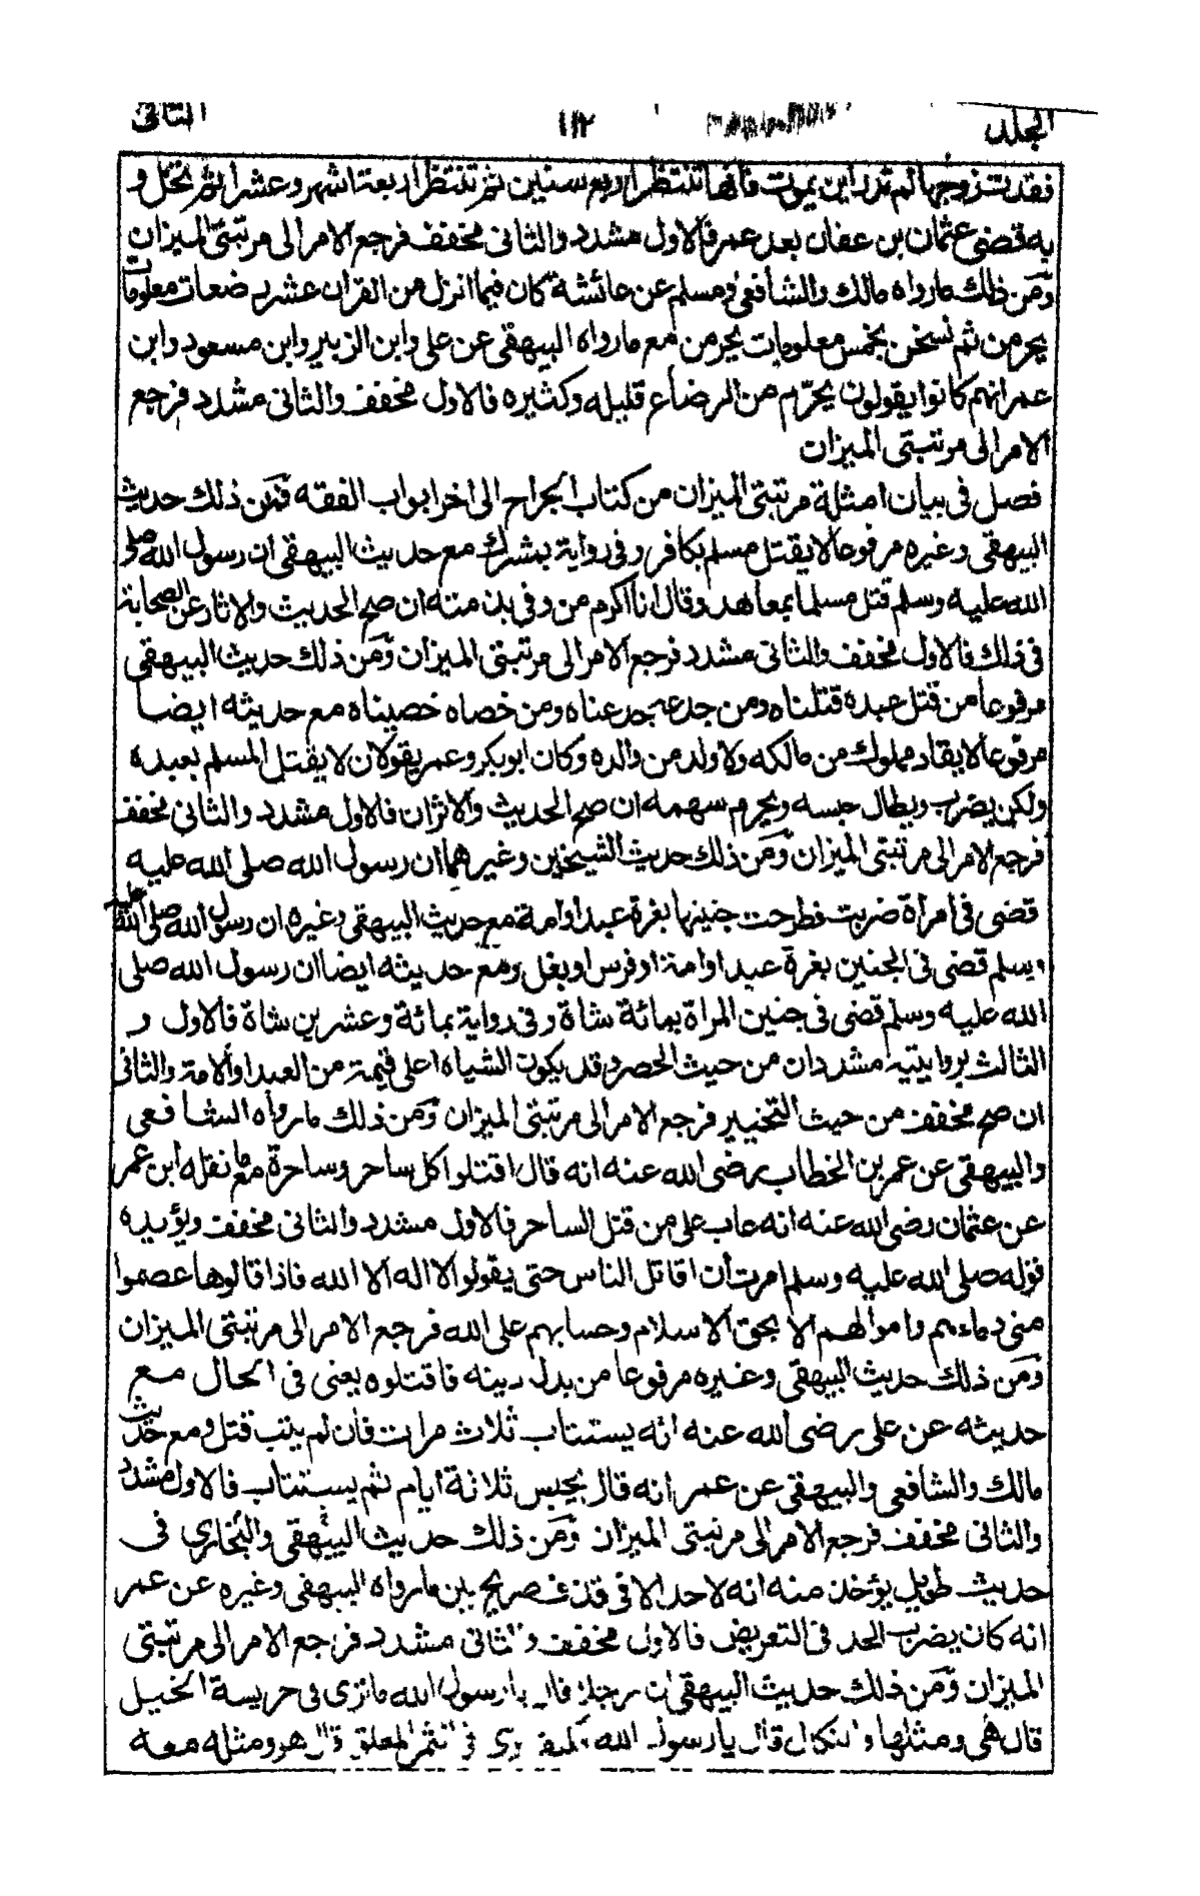 الجلد ١١٢ الثانى
فقدت زوجها لم تدر اين يموت فانها تنتظر اربع سنين ثم تنتظر اربعة اشهر وعشرا ثم تحل و
به قضى عثمان بن عفان بعد عمر فالاول مشدد والثانى مخفف فرجع الامر الى مرتبتى الميزان
ومن ذلك ما رواه مالك والشافعى ومسلم عن عائشة كان فيما انزل من القران عشر رضعات معلومات
يحرمن ثم نسخن بخمس معلومات يحرمن مع ما رواه البيهقى عن على وابن الزبير وابن مسعود وابن
عمر انهم كانوا يقولون يحرّم من الرضاع قليله وكثيره فالاول مخفف والثانى مشدد فرجع
الامر الى مرتبتى الميزان
فصل فى بيان امثلة مرتبتى الميزان من كتاب الجراح الى اخر ابواب الفقه فمن ذلك حديث
البيهقى وغيره مرفوعا لا يقتل مسلم بكافر وفى رواية بمشرك مع حديث البيهقى ان رسول الله صلى
الله عليه وسلم قتل مسلما بمعاهد وقال انا اكرم من وفى بذمته ان صح الحديث والاثار عن الصحابة
فى ذلك فالاول مخفف والثانى مشدد فرجع الامر الى مرتبتى الميزان ومن ذلك حديث البيهقى
مرفوعا من قتل عبده قتلناه ومن جدعه جدعناه ومن خصاه خصيناه مع حديثه ايضا
مرفوعا لا يقاد مملوك من مالكه ولا ولد من والده وكان ابو بكر وعمر يقولان لا يقتل المسلم بعبده
ولكن يضرب ويطال حبسه ويحرم سهمه ان صح الحديث والاثران فالاول مشدد والثانى مخفف
فرجع الامر الى مرتبتى الميزان ومن ذلك حديث الشيخين وغيرهما ان رسول الله صلى الله عليه
قضى فى امرأة ضربت فطرحت جنينها بغرة عبد او امة مع حديث البيهقى وغيره ان رسول الله صلى الله عليه
وسلم قضى فى الجنين بغرة عبد او امة او فرس او بغل ومع حديثه ايضا ان رسول الله صلى
الله عليه وسلم قضى فى جنين المراة بمائة شاة وفى رواية بمائة وعشرين شاة فالاول و
الثالث بروايتيه مشددان من حيث الحصر وقد يكون الشياه اعلى قيمة من العبد او الامة والثانى
ان صح مخفف من حيث التخيير فرجع الامر الى مرتبتى الميزان ومن ذلك ما رواه الشافعى
والبيهقى عن عمر بن الخطاب رضى الله عنه انه قال اقتلوا كل ساحر وساحرة مع ما نقله ابن عمر
عن عثمان رضى الله عنه انه عاب على من قتل الساحر فالاول مشدد والثانى مخفف ويؤيده
قوله صلى الله عليه وسلم امرت أن اقاتل الناس حتى يقولوا لا اله الا الله فاذا قالوها عصموا
منى دماءهم واموالهم الا بحق الاسلام وحسابهم على الله فرجع الامر الى مرتبتى الميزان
ومن ذلك حديث البيهقى وغيره مرفوعا من بدل دينه فاقتلوه يعنى فى الحال مع
حديثه عن على رضى الله عنه انه يستتاب ثلاث مرات فان لم يتب قتل ومع حديث
مالك والشافعى والبيهقى عن عمر انه قال يحبس ثلاثة ايام ثم يستتاب فالاول مشدد
والثانى مخفف فرجع الامر الى مرتبتى الميزان ومن ذلك حديث البيهقى والبخارى فى
حديث طويل يؤخذ منه انه لا حد الا فى قذف صريح بين ما رواه البيهقى وغيره عن عمر
انه كان يضرب الحد فى التعريض فالاول مخفف والثانى مشدد فرجع الامر الى مرتبتى
الميزان ومن ذلك حديث البيهقى ان رجلا قال يا رسول الله ما ترى فى حريسة الخيل
قال هى ومثلها والنكال قال يا رسول الله كيف ترى فى الثمر المعلق قال هو ومثله معه